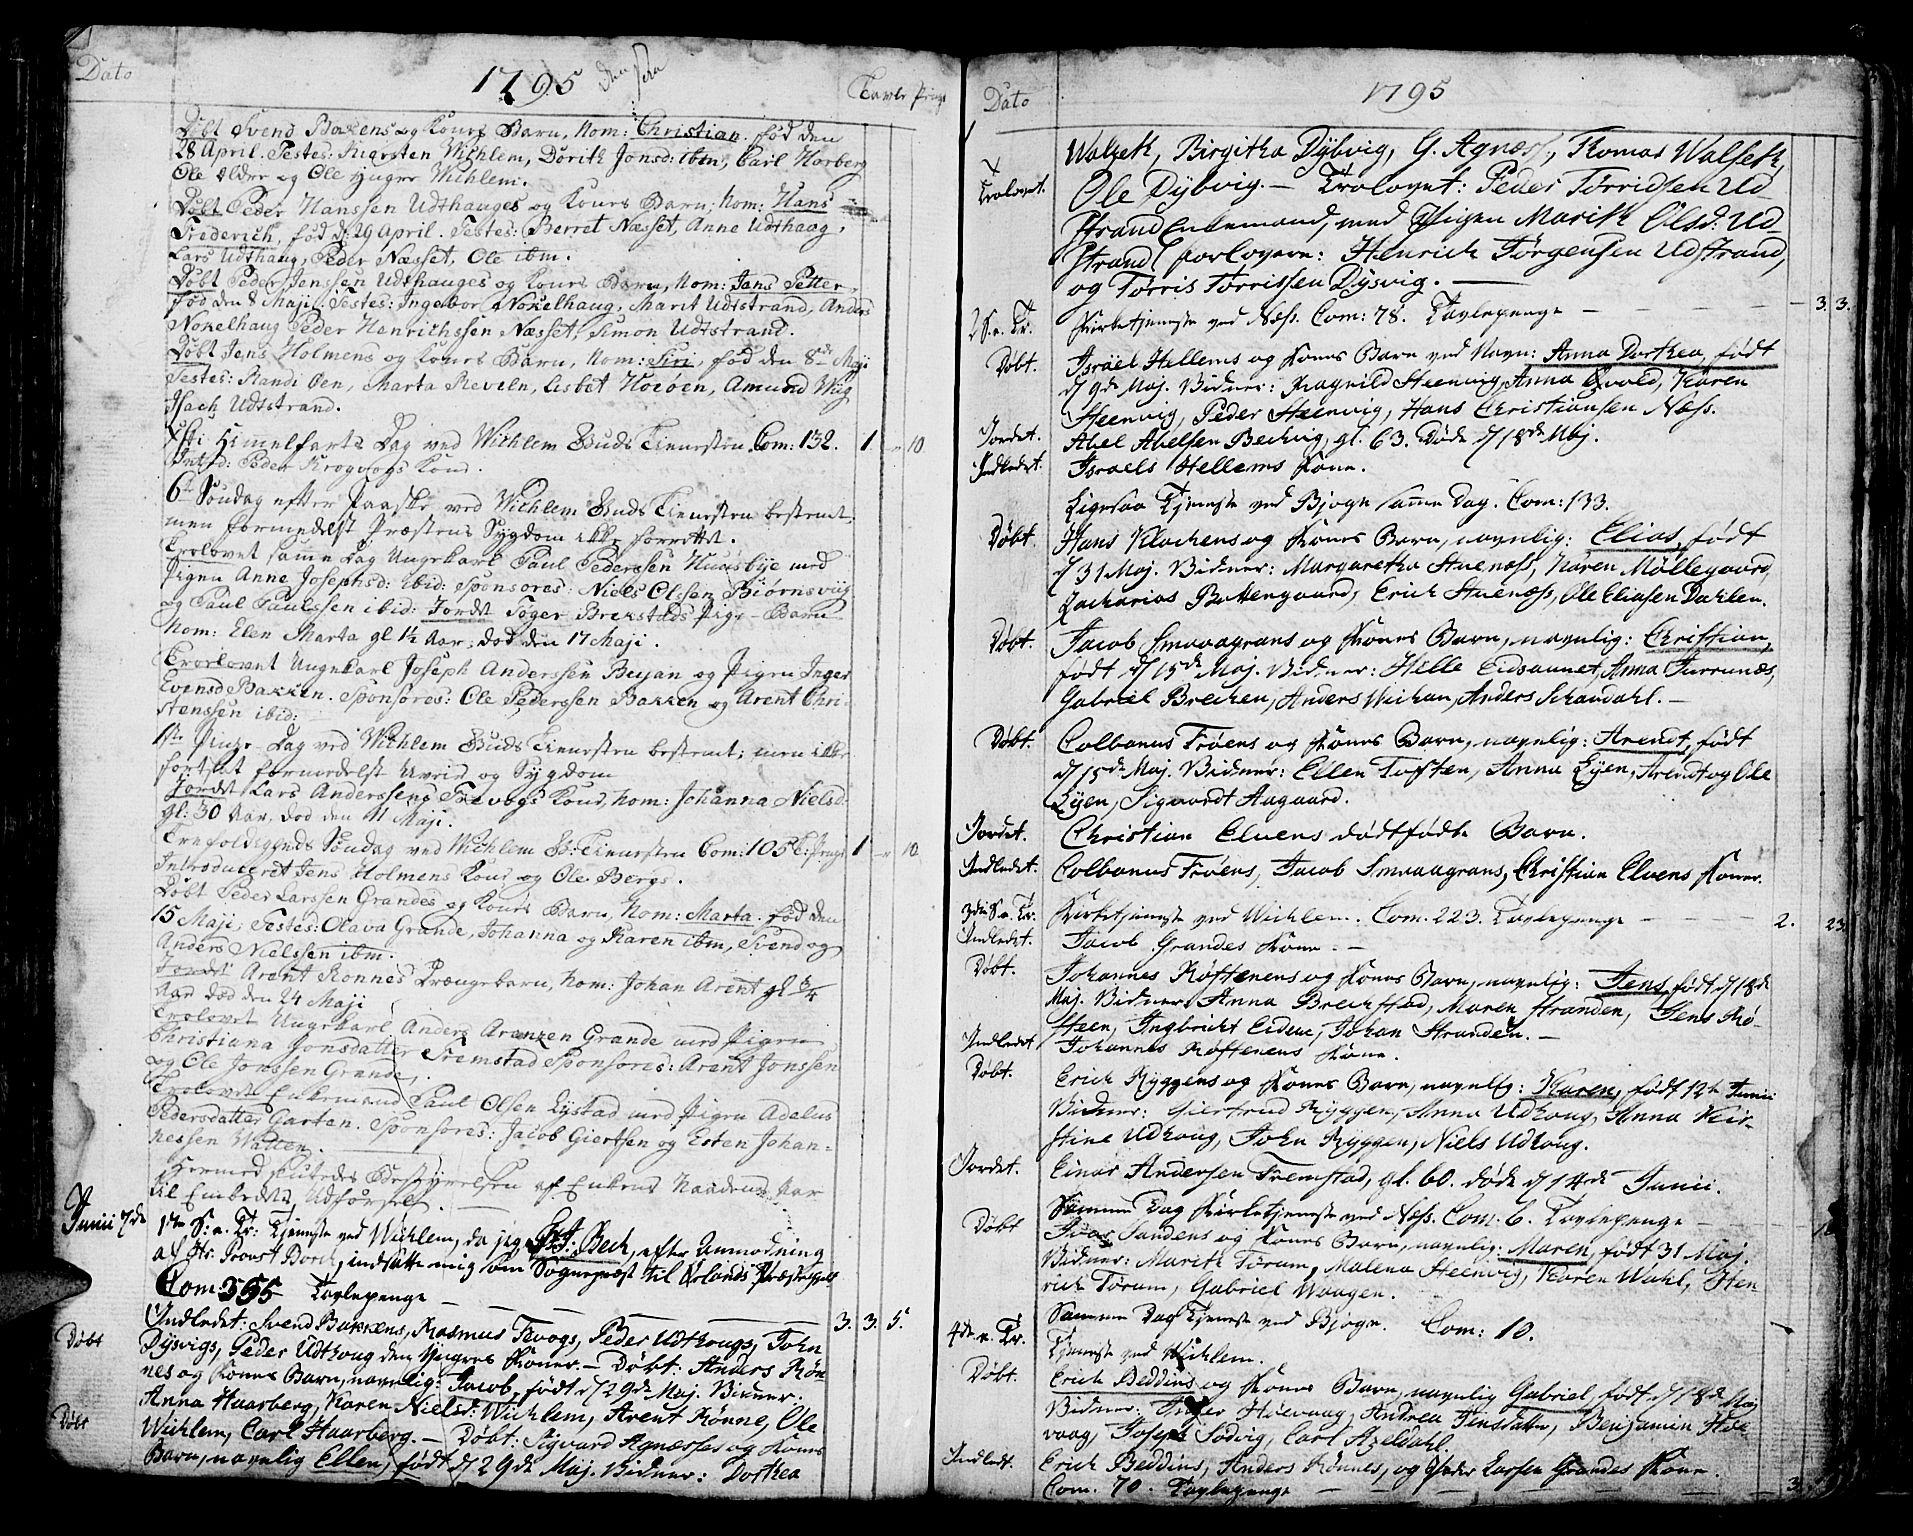 Dato 1795 Tavle Penge
Døbt Svend Bakens og Kones Barn, Nom: Christian. fød den
28 April. Testes: Karsten Wichlem, Dorith Jonsd: ibm, Carl Horberg
Ole Older og Ole Wichlem.
Døbt Peder Hanssen Udthauges og Kones Barn, Nom: Hans
Frederich, fød d. 29 April. Testes: Berret Næsset, Anne Udthaug,
Lars Udthaug, Peder Næsset, Ole ibm.
Døbt Peder Jenssen Udthauges og Kones Barn, Nom: Jans Petter,
fød den 8 Maji, Testes: Ingebor Nokelhaug, Marit Udtstrand, Anders
Nokelhaug Peder Henrichssen Næsset, Simon Udtstrand.
Døbt Jens Holmens og Kones Barn, Nom: Siri, fød den 8de Maji
Testes: Randi Oen, Marta Reveln, Lisbet Hoeøen, Amund Wiig
Isach Udtstrand.
Xsti Himelfarts Dag ved Wichlem Guds Tienesten. Com: 132. 1. 10
Introd: Peder Krogvogs Kone.
6te Søndag efter Paaske ved Wichlem Guds Tienesten bestemt,
men formedelst Præstens Sygdom ikke forrettet.
Trolovet samme Dag Ungekarl Paul Pederssen Huusbye med
Pigen Anne Josephsd: Ibid: Sponsores: Niels Olssen Biørnsviig
og Paul Paulssen ibid: Jordet Toger Brekstads Pige-Barn
Nom: Elen Marta gl 1½ Aar, død den 17 Maji.
Trorlovet Ungekarl Joseph Anderssen Beyan og Pigen Inger
Evensd Bakken. Sponsores: Ole Pederssen Bakken og Arent Chri-
stenssen ibid:
1ste Pinze-Dag ved Wichlem Guds Tienesten bestemt; men ikke
fortsat formedelst Uveir og Sygdom
Jordet Lars Anderssens Trevogs Kone, Nom: Johanna Nielsd:
gl: 30 Aar, død den 11 Maji.
Trefoldigheds Søndag ved Wichlem G: Tienesten Com: 105 T: Penge 1 10
Introduceret Jens Holmens Kone og Ole Bergs.
Døbt Peder Larssen Grandes og Kones Barn, Nom: Marta. fød den
15 Maji, Testes: Olava Grande, Johanna og Karen ibm, Svend og
Anders Nielssen ibm.
Jordet Arent Ronnes Drængebarn, Nom: Johan Arent gl ¾
Aar død den 24 Maji
Trolovet Ungekarl Anders Arenzen Grande med Pigen
Christiana Jonsdatter Fremstad Sponsores: Arent Jonssen
og Ole Jonssen Grande.
Trolovet Enkemand Paul Olsen Lystad med Pigen Adelus
Pedersdatter Garten. Sponsores: Jacob Giertsen og Esten Johan-
nessen Witten.
Hermed sluttedes Bestyrelsen af Enkens Naadens Aar
til Embedets Udførsel.
Junii 7de 1ste S: e. Tr: Tjeneste ved Wichlem, da jeg Bech, efter Anmodning
af Hr. Provst Borch, indsatte mig som Sognepræst til Ørlands Præstegjeld
Com: 355 Tavlepenge 3. 3. 5.
Indledet: Svend Bakkens, Rasmus Trevogs, Peder Udthougs, John
Døbt Dysvigs, Peder Udthoug den Yngres Koner. – Døbt: Anders Røn-
nes og Kones Barn, navnlig: Jacob, født d 29de Maj. Vidner:
Anna Haarberg, Karen Nielsd: Wichlem, Arent Rønne, Ole
Døbt Wichlem, Carl Haarberg. – Døbt: Sigvard Agnæsses og Kones
Barn, navnlig Ellen, født d 29de Maj. Vidner: Dorthea
Dato 1795
Walseth, Birgitha Dybvig, G. Agnæss, Thomas Walseth,
Trolovet. Ole Dybvig. – Trolovet: Peder Tørridsen Ud-
strand Enkemand, med Pigen Marith Olsd: Ud-
strand forlovere: Henrich Jørgensen Udstrand,
og Tørris Tørrissen Dysvig. 3. 3.
2 S. e. Tr. Kirketjeneste ved Næss. Com: 78. Tavlepenge
Døbt. Israel Hellems og Kones Barn ved Navn: Anna Dorthea, født
d 9de Maj. Vidner: Ragnild Steenvig, Anna Qvold, Karen
Steenvig, Peder Steenvig, Hans Christiansen Næss.
Jordet. Abel Abelsen Bechvig, gl. 63. Døde d 18de Maj.
Indledet. Israels Hellems Kone.
Ligesaa Tjeneste ved Bjogn samme Dag. Com: 133.
Døbt. Hans Klachens og Kones Barn, navnlig: Elias, født
d 31 Maj. Vidner: Margaretha Stuenæss, Karen Møllegaard,
Zacharias Bottengaard, Erich Stuenæss, Ole Eliasen Dahlen.
Døbt. Jacob Smaaagrans og Kones Barn, navnlig: Christian,
født d 15de Maj. Vidner: Hille Eidsaunet, Anna Furrunæs,
Gabriel Brechen, Anders Wichan, Anders Schaudahl. –
Døbt. Colbanus Frøens og Kones Barn, navnlig: Arendt, født
d 15de Maj. Vidner: Ellen Toften, Anna Eyen, Arendt og Ole
Eyen, Sigvardt Aagaard.
Jordet. Christian Elvens dødtfødte Barn.
Indledet. Colbanus Frøens, Jacob Smaaagrans, Christian Elvens Koner.
3die S. e. Tr. Kirketjeneste ved Wichlem. Com. 223. Tavlepenge 2. 23
Indledet. Jacob Grandes Kone. –
Døbt. Johannes Røstenens og Kones Barn, navnlig: Jens, født d 18de
Maj. Vidner: Anna Brechstad, Maren Stranden, Jens Rø-
steen, Ingbricht Eidene, Johan Stranden. –
Indledet Johannes Røstenens Kone.
Døbt. Erich Ryggens og Kones Barn, navnlig: Karen, født 12te Junii
Vidner: Giertrud Ryggen, Anna Udhoug, Anna Kir-
stine Udhoug, John Ryggen, Niels Udhoug.
Jordet. Einar Andersen Fremstad, gl. 60. døde d 14de Junii.
Samme Dag Kirketjeneste ved Næss. Com. 6. Tavlepenge
Døbt Ivar Sandens og Kones Barn, navnlig: Maren, født 31 Maj.
Vidner: Marith Tørum, Malena Steenvig, Karen Wahl, Hen-
rich Tørum, Gabriel Waagen.
Samme Dag Tjeneste ved Bjogn. Com: 10.
4de e. Tr. Tjeneste ved Wichlem.
Døbt. Erich Beddins og Kones Barn, navnlig Gabriel, født d 18de Maj
Vidner: Inger Hoevaag, Andrea Jensdatter, Benjamin Hoe-
vaag, Joseph Sødvig, Carl Axeldahl.
Indledt. Erich Beddins, Anders Rønnes, og Peder Larsen Grandes Kone.
Com. 70. Tavlepenge 3